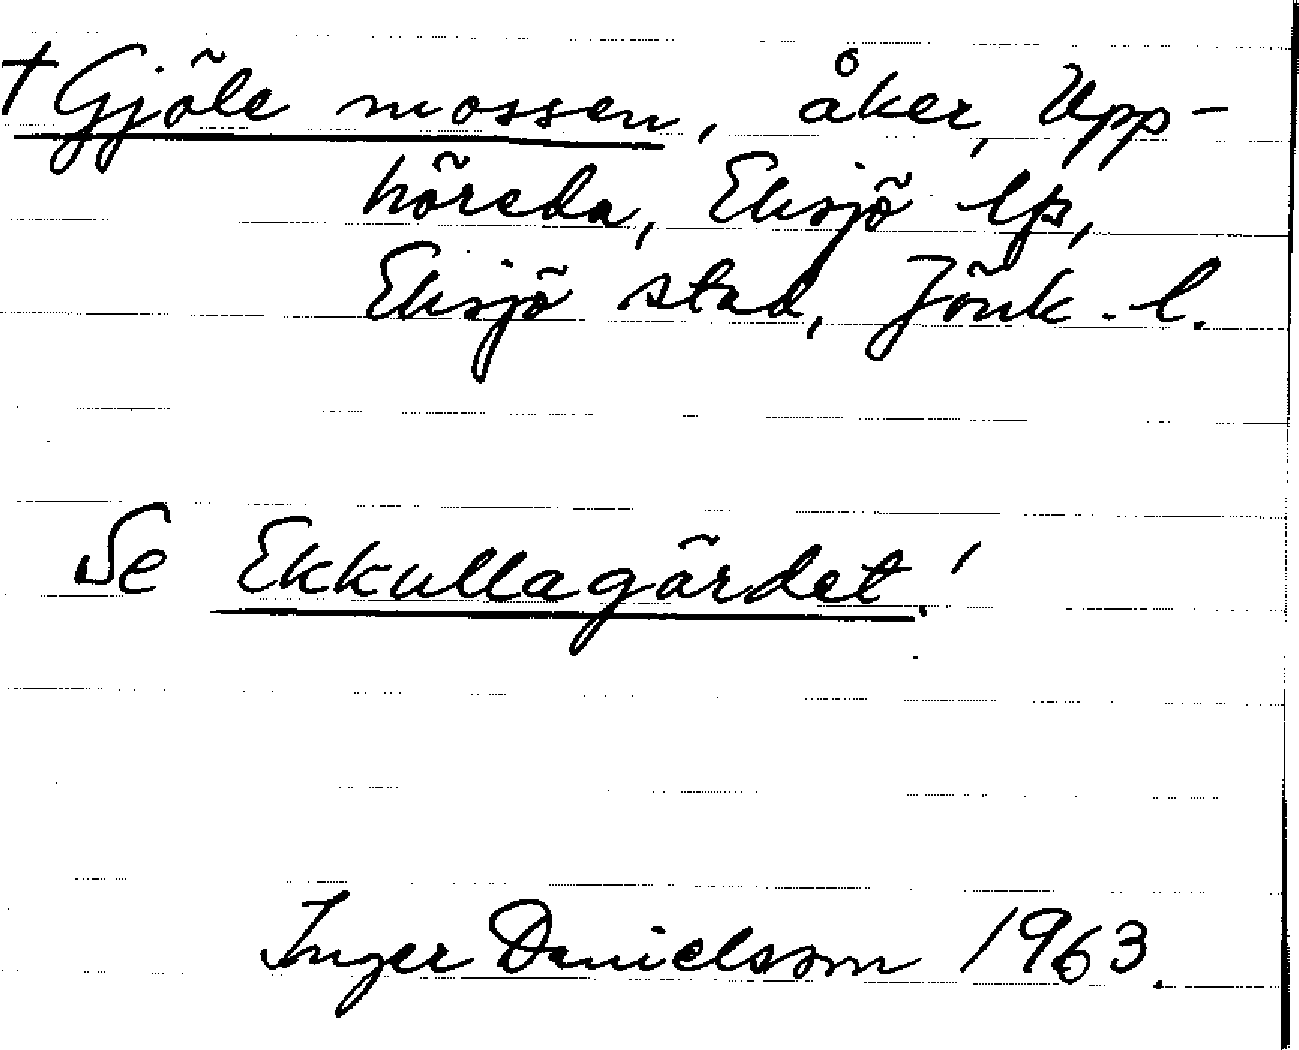 † Gjöle mossen, åker, Upp-
höreda, Eksjö lfs,
Eksjö stad, Jönk. l.
Se Ekkullagärdet!
Inger Danielsson 1963.